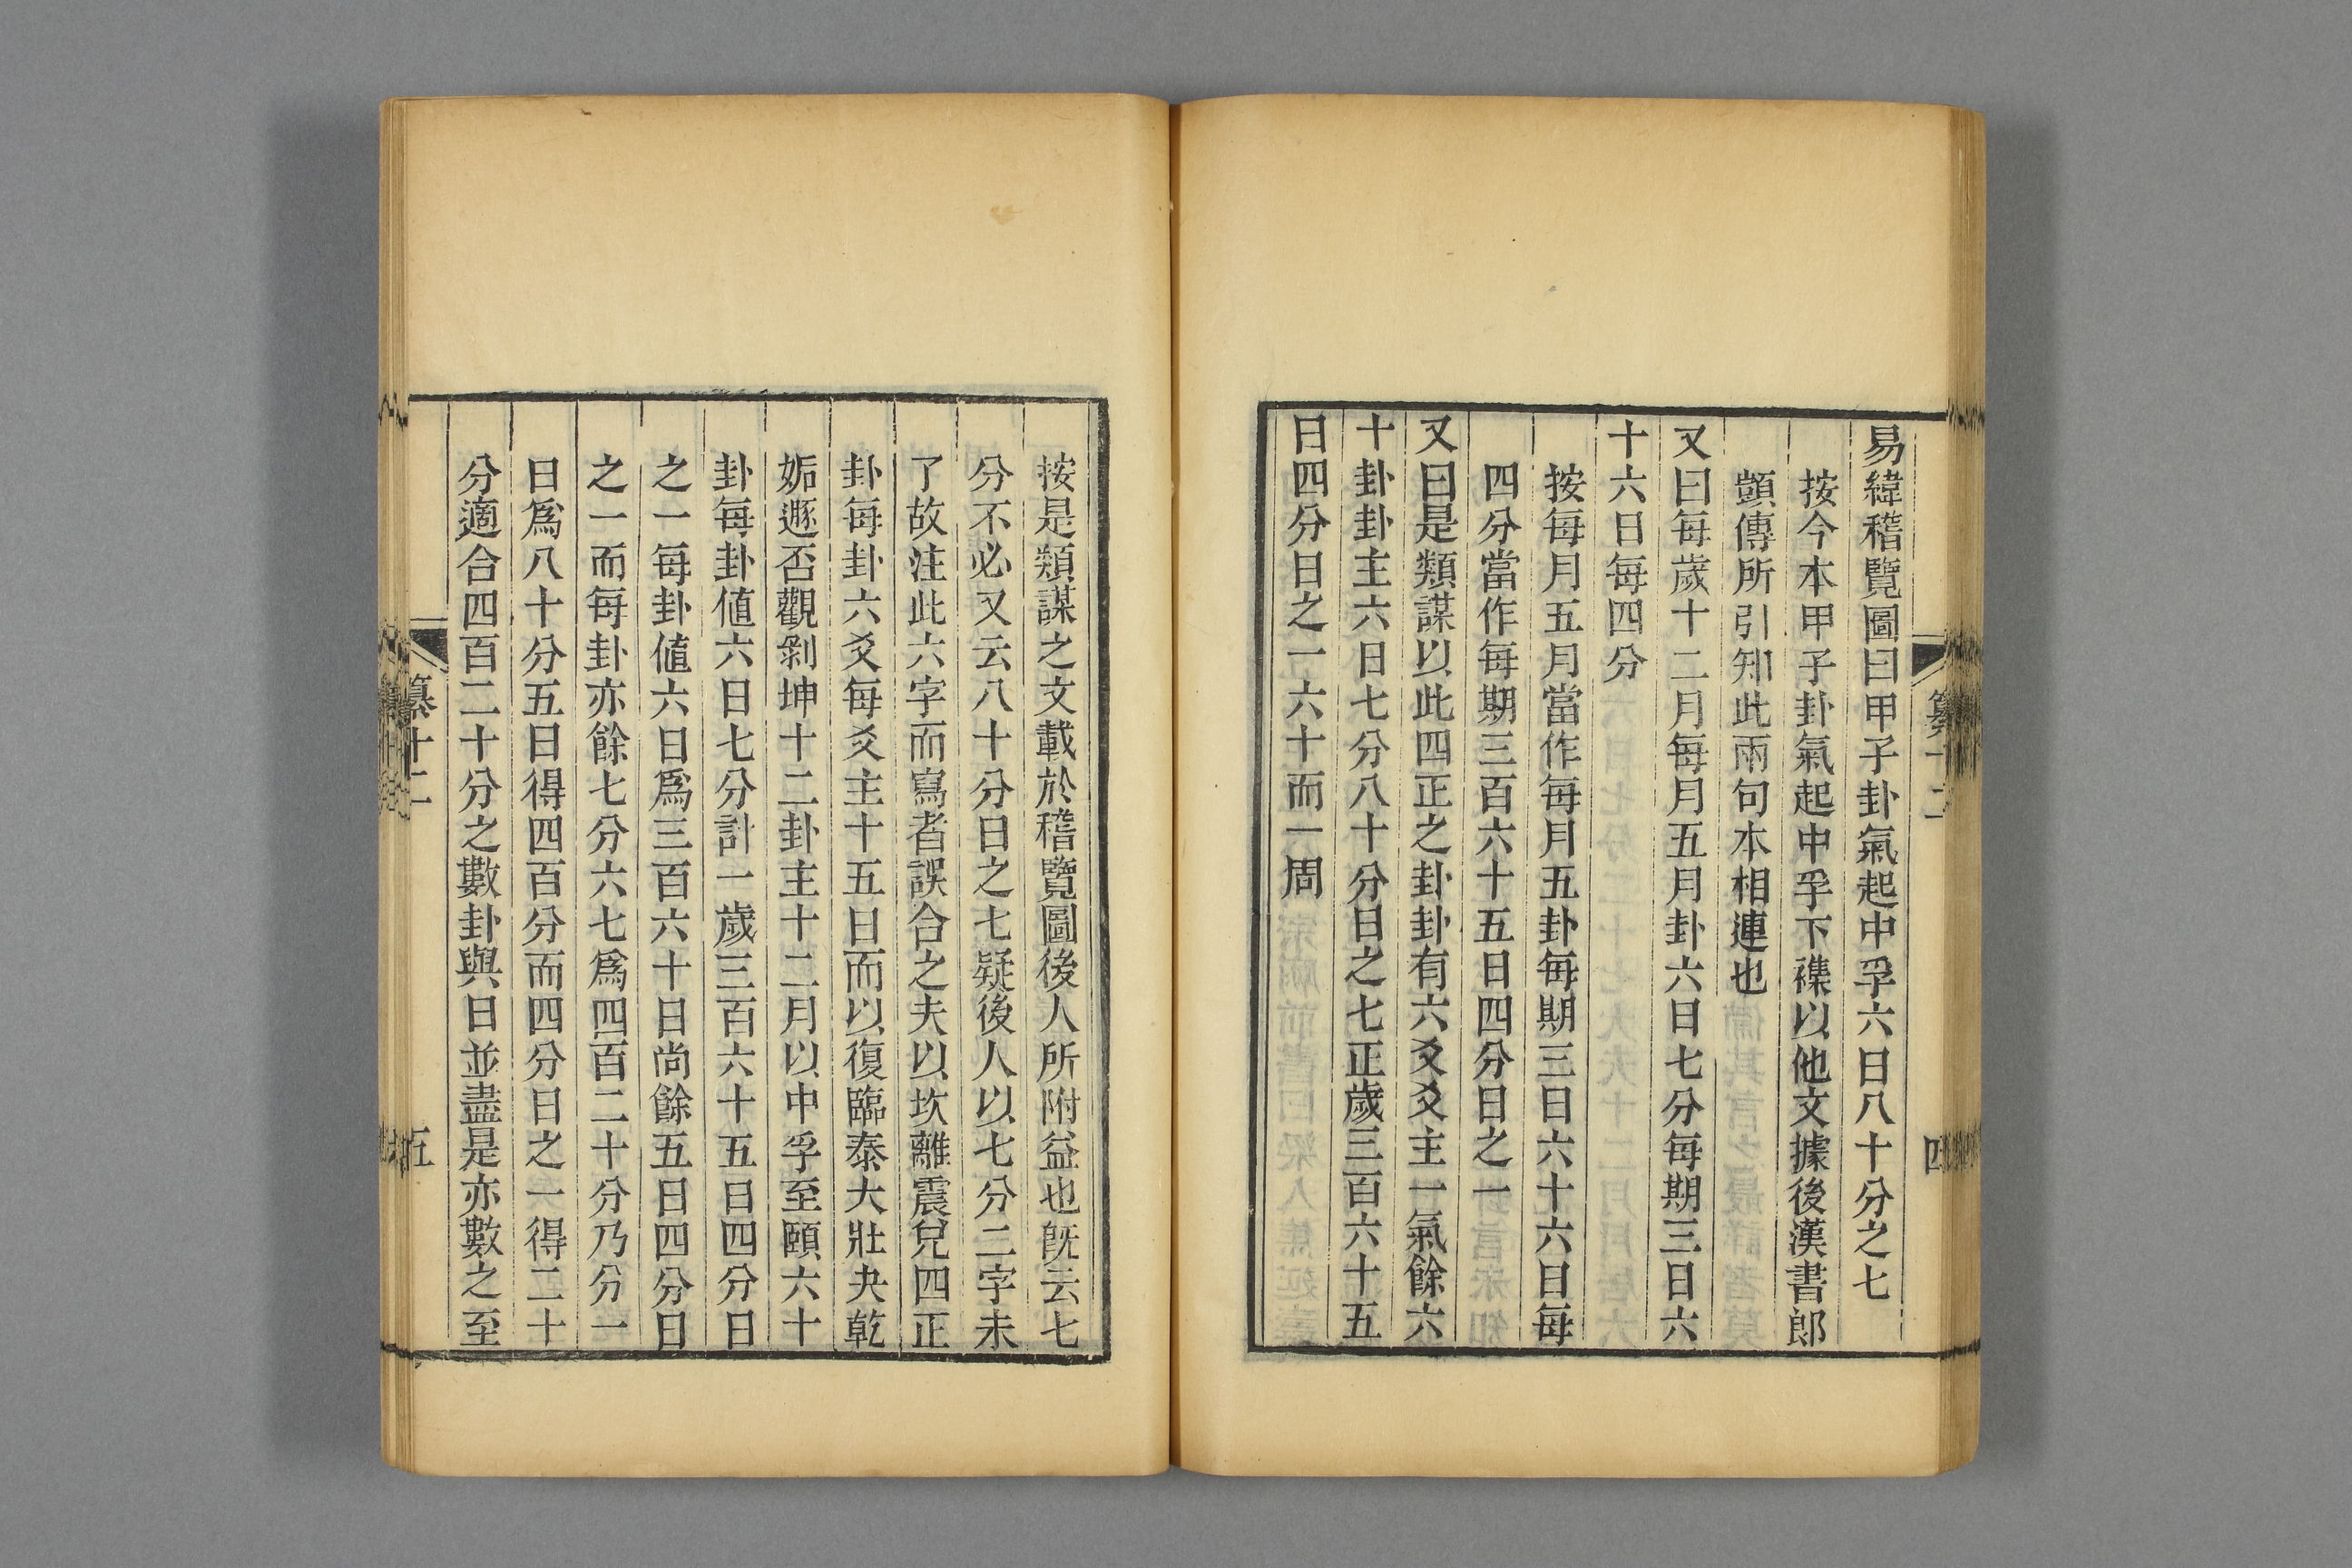 易緯稽覽圖曰甲子卦氣起中孚六日八十分之七
按今本甲子卦氣起中孚下襍以他文據後漢書郎
顗傳所引知此兩句本相連也
又曰每歲十二月每月五月卦六日七分每期三日六
十六日每四分
按每月五月當作每月五卦每期三日六十六日每
四分當作每期三百六十五日四分日之一
又曰是類謀以此四正之卦卦有六爻爻主一氣餘六
十卦卦主六日七分八十分日之七正歲三百六十五
日四分日之一六十而一周
纂十二
四
按是類謀之文載於稽覽圖後人所附益也旣云七
分不必又云八十分日之七疑後人以七分二字未
了故注此六字而寫者誤合之夫以坎離震兌四正
卦每卦六爻每爻主十五日而以復臨泰大壯夬乾
姤遯否觀剝坤十二卦主十二月以中孚至頤六十
卦每卦値六日七分計一歲三百六十五日四分日
之一每卦値六日爲三百六十日尚餘五日四分日
之一而每卦亦餘七分六七爲四百二十分乃分一
日爲八十分五日得四百分而四分日之一得二十
分適合四百二十分之數卦與日並盡是亦數之至
纂十二
五